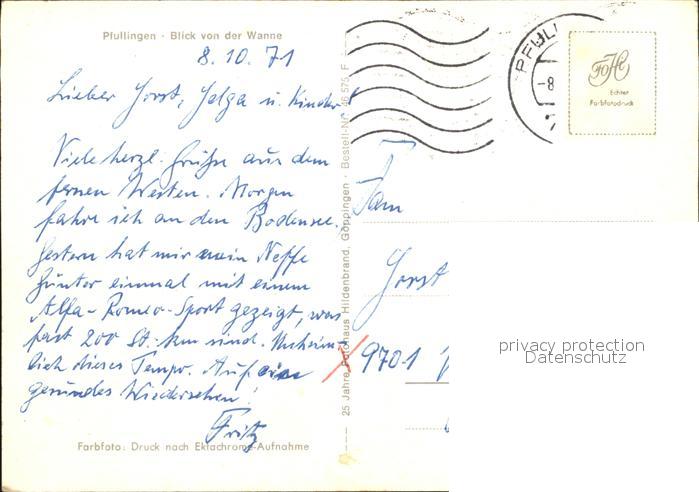 Pfullingen · Blick von der Wanne
8.10.71
Lieber Horst, Helga u. Kinder!
Viele herzl. Grüße aus dem
fernen Westen. Morgen
fahre ich an den Bodensee.
Gestern hat mir mein Neffe
Günter einmal mit einem
Alfa-Romeo-Sport gezeigt, was
fast 200 St. km sind. Unheim-
lich dieses Tempo. Auf ein
gesundes Wiedersehen!
Fritz
Farbfoto: Druck nach Ektachrome-Aufnahme
25 Jahre Fotohaus Hildenbrand, Göppingen · Bestell-Nr. 46 575 F
PFULL
-8
7
Echter
Farbfotodruck
Fam
Horst
9701
privacy protection
Datenschutz